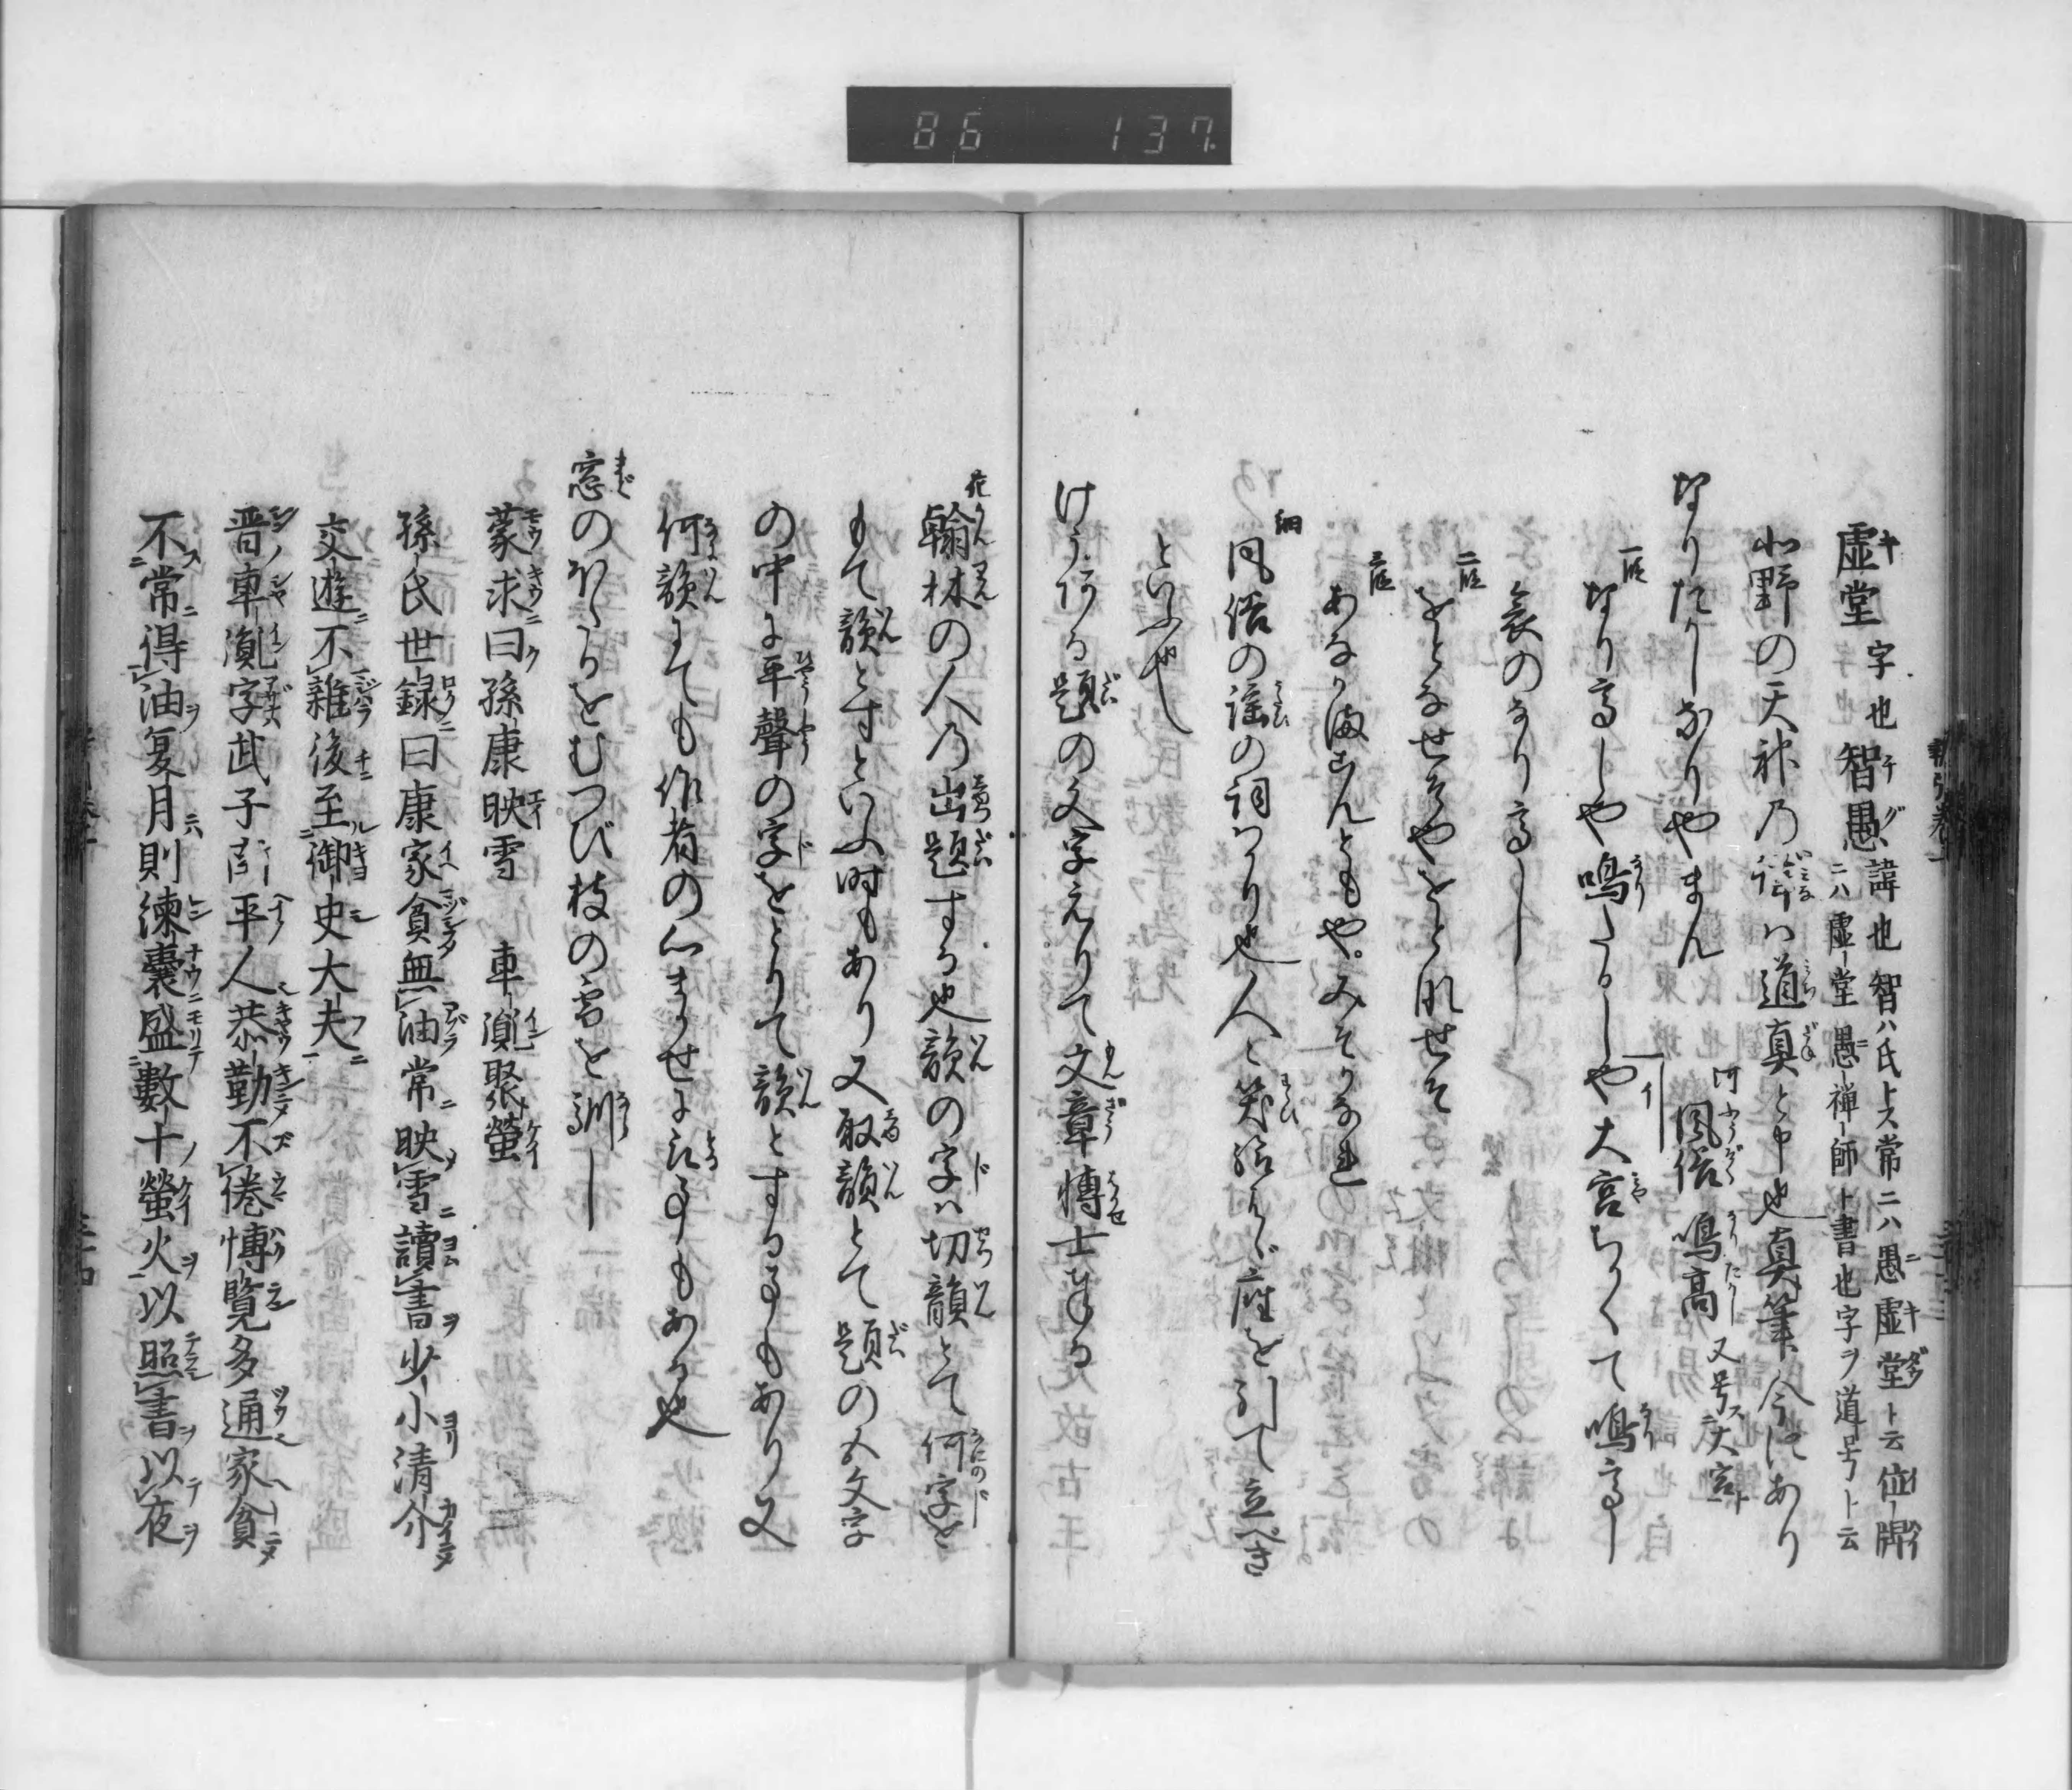 86 137
虚堂 字也 智愚 諱也 智ハ氏トス常ニハ愚虚堂ト云位牌
ニハ虚堂愚禅師ト書也字ヲ道号ト云
北野の天神乃諱ハ道真と申也真筆今にあり
なりたかしなりやまん 河 風俗 鳴高 又号ス大宮ト
一段 なり高しや鳴たかしや大宮ちかくて鳴高し
哀のなり高し
二段 をとなせそやをとなせそ
三段 あなかまこんともや。みそかなれ
細 風俗の謡の詞はかり也人と笑給はゞ座を引て立べき
といふ也
けうある題の文字えりて文章博士奉る
花 翰林の人乃出題する也韻の字ハ切韻とて何字を
もて韻とすといふ時もあり又取韻とて題の五文字
の中に平聲の字をとりて韻とする事もあり又
何韻にても作者の心まかせに
窓のほたるをむつび枝の雪を馴し
蒙求曰孫康映雪 車胤聚螢
孫氏世録曰康家貧無油常映雪讀書少小清介
交遊不雜後至御史大夫
晋車胤字武子南平人恭勤不倦博覧多通家貧
不常得油夏月則練嚢盛數十螢火以照書以夜